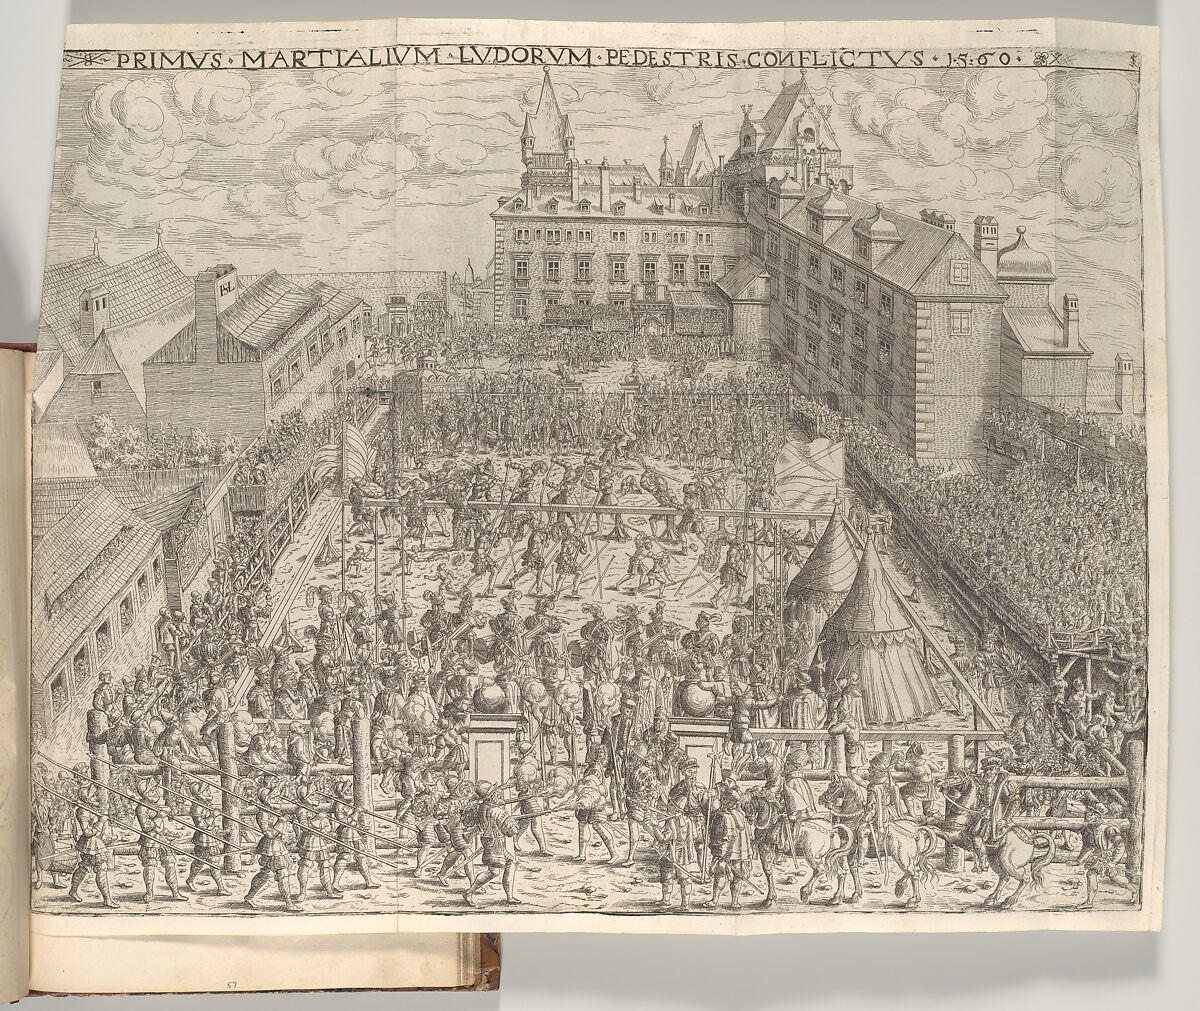 PRIMVS · MARTIALIVM · LVDORVM · PEDESTRIS · CONFLICTVS · 1·5·60·
HSL
57